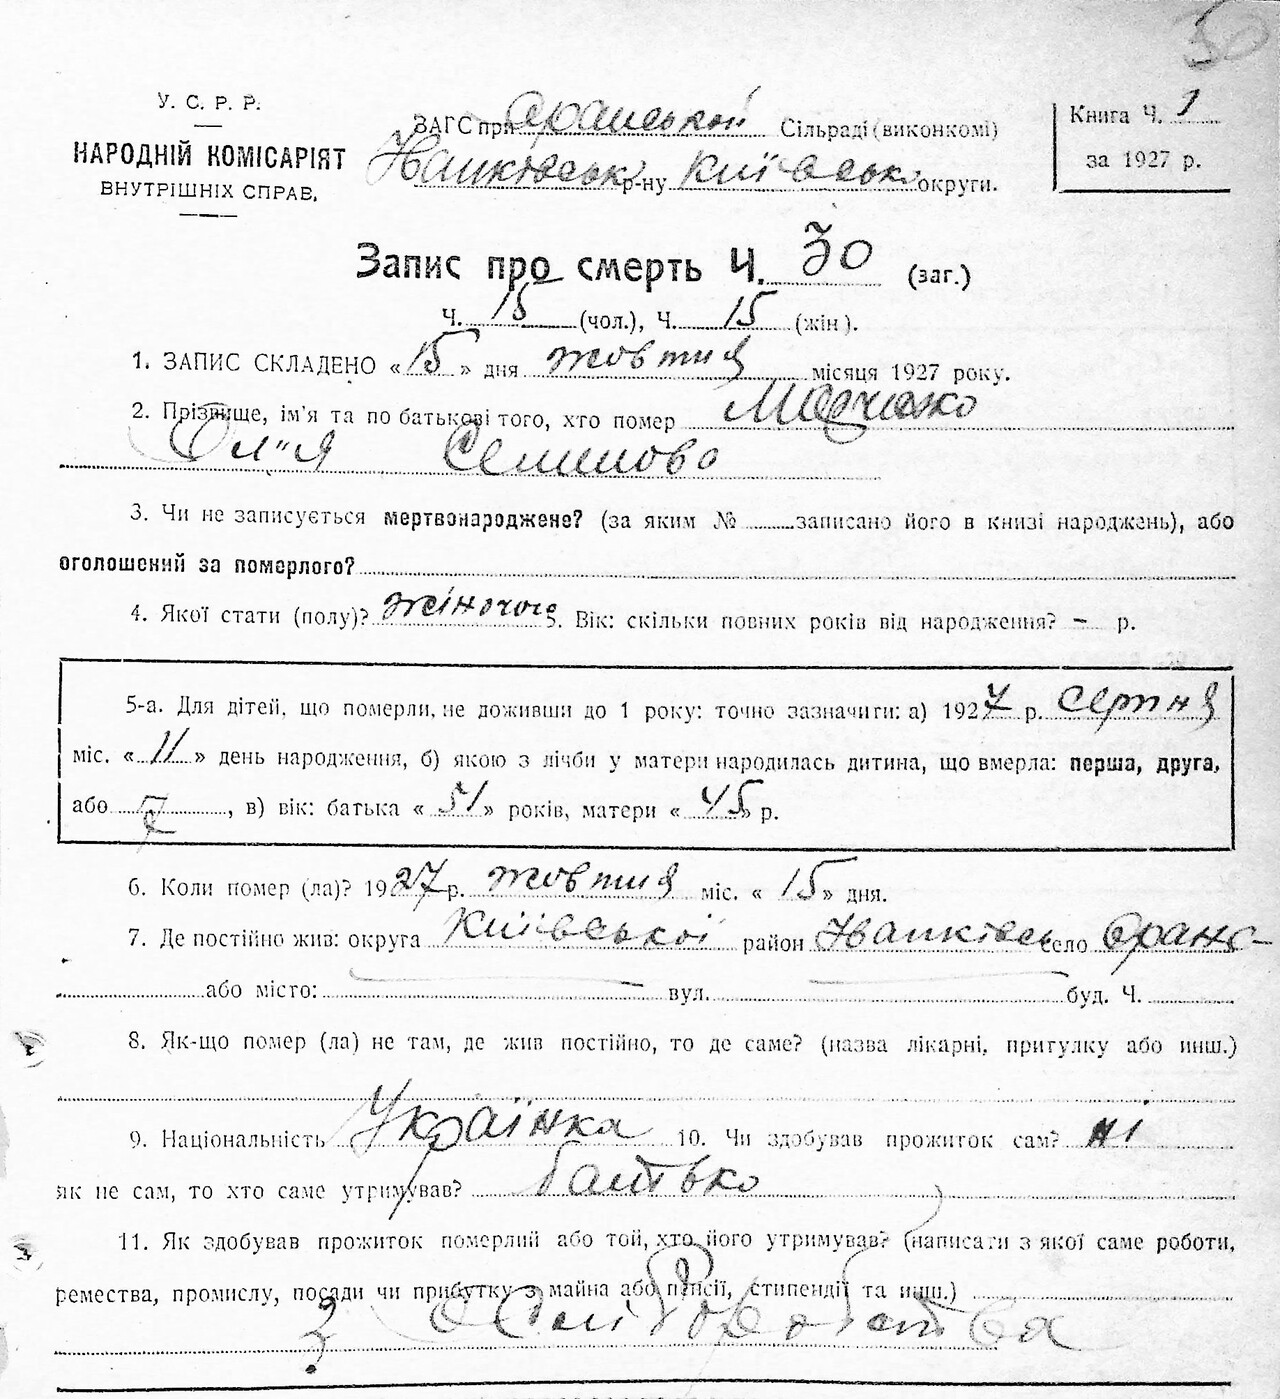 30
У. С. Р. Р.
НАРОДНІЙ КОМІСАРІЯТ
ВНУТРІШНІХ СПРАВ.
ЗАГС при Оранській Сільраді (виконкомі)
Іванківськ р-ну Київсько округи.
Книга Ч. 1
за 1927 р.
Запис про смерть Ч. 30 (заг.)
Ч. 15 (чол.), Ч. 15 (жін).
1. ЗАПИС СКЛАДЕНО «15» дня жовтня місяця 1927 року.
2. Прізвище, ім'я та по батькові того, хто помер
Семенова
3. Чи не записується мертвонароджене? (за яким № записано його в книзі народжень), або
оголошений за померлого?
4. Якої стати (полу)? жіночої 5. Вік: скільки повних років від народження? – р.
5-а. Для дітей, що померли, не доживши до 1 року: точно зазначити: а) 1927 р. серпня
міс. «11» день народження, б) якою з лічби у матери народилась дитина, що вмерла: перша, друга,
або , в) вік: батька «51» років, матери «45» р.
6. Коли помер (ла)? 1927 р. жовтня міс. «15» дня.
7. Де постійно жив: округа Київської район Іванківсь село Оране
або місто: вул. буд. Ч.
8. Як-що помер (ла) не там, де жив постійно, то де саме? (назва лікарні, притулку або инш.)
9. Національність Українка 10. Чи здобував прожиток сам? ні
як не сам, то хто саме утримував? батько
11. Як здобував прожиток померлий або той, хто його утримував? (написати з якої саме роботи,
ремества, промислу, посади чи прибутку з майна або пенсії, стипендії та инш.)
З